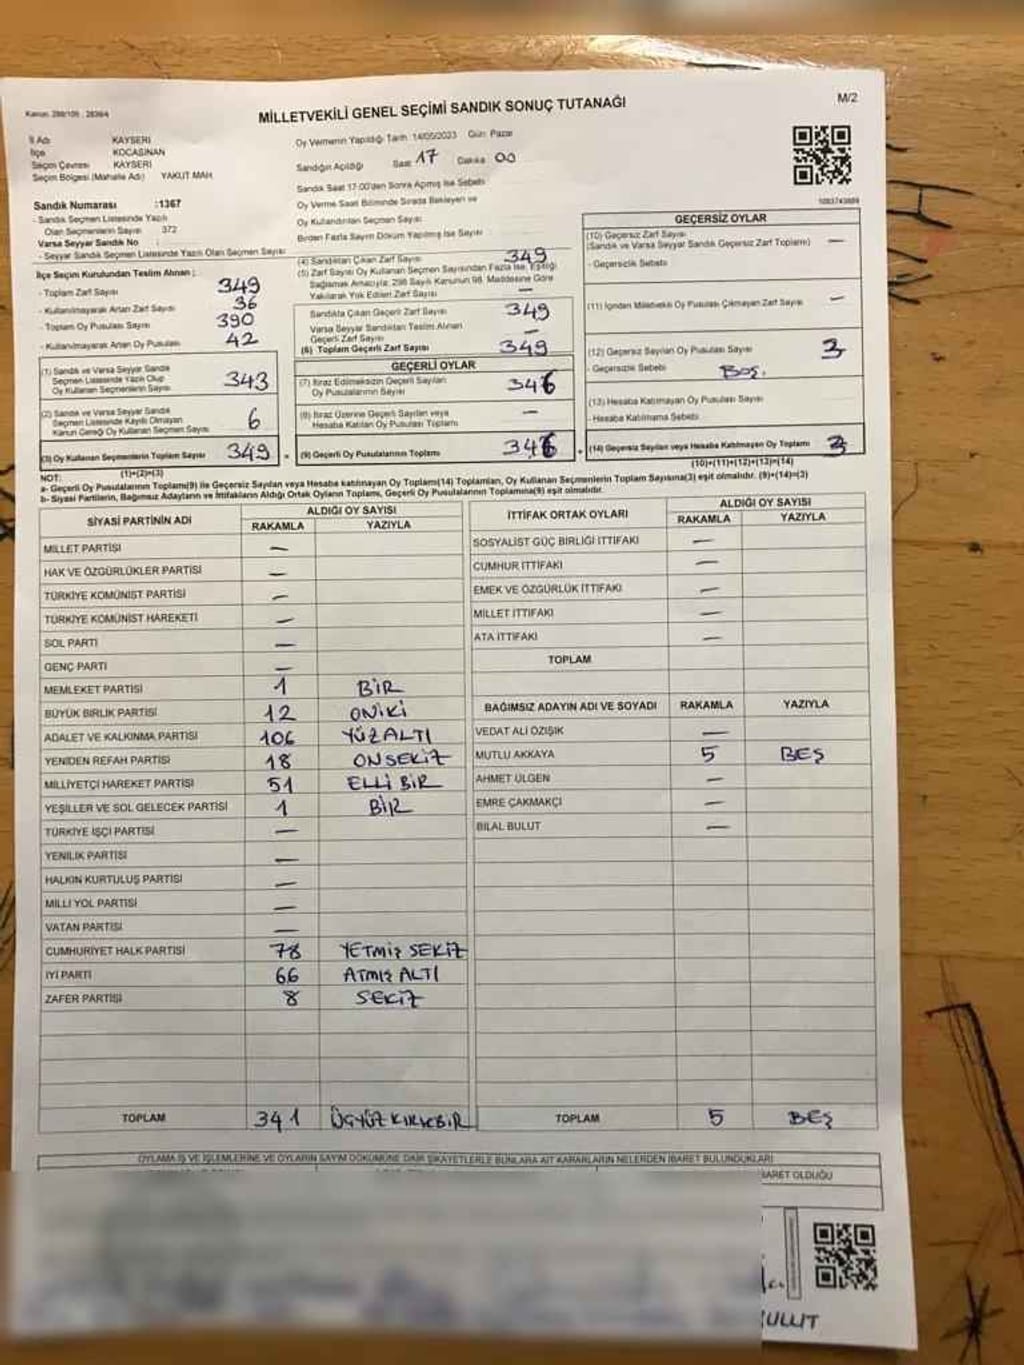 MİLLETVEKİLİ GENEL SEÇİMİ SANDIK SONUÇ TUTANAĞI
M/2
İl Adı KAYSERİ
İlçe KOCASİNAN
Seçim Çevresi KAYSERİ
Seçim Bölgesi (Mahalle Adı) YAKUT MAH
Sandık Numarası :1367
- Sandık Seçmen Listesinde Yazılı
Olan Seçmenlerin Sayısı 372
Varsa Seyyar Sandık No
- Seyyar Sandık Seçmen Listesinde Yazılı Olan Seçmen Sayısı
İlçe Seçim Kurulundan Teslim Alınan ;
- Toplam Zarf Sayısı 349
- Kullanılmayarak Artan Zarf Sayısı 36
- Toplam Oy Pusulası Sayısı 390
- Kullanılmayarak Artan Oy Pusulası 42
(1) Sandık ve Varsa Seyyar Sandık
Seçmen Listesinde Yazılı Olup
Oy Kullanan Seçmenlerin Sayısı 343
(2) Sandık ve Varsa Seyyar Sandık
Seçmen Listesinde Kayıtlı Olmayan
Kanun Gereği Oy Kullanan Seçmen Sayısı 6
(3) Oy Kullanan Seçmenlerin Toplam Sayısı 349
(1)+(2)=(3)
Oy Vermenin Yapıldığı Tarih 14/05/2023 Gün: Pazar
Sandığın Açıldığı Saat 17 Dakika 00
Sandık Saat 17:00'den Sonra Açılmış İse Sebebi
Oy Verme Saati Bitiminde Sırada Bekleyen ve
Oy Kullandırılan Seçmen Sayısı
Birden Fazla Sayım Döküm Yapılmış İse Sayısı
(4) Sandıktan Çıkan Zarf Sayısı 349
(5) Zarf Sayısı Oy Kullanan Seçmen Sayısından Fazla İse, Eşitliği
Sağlamak Amacıyla, 298 Sayılı Kanunun 98. Maddesine Göre
Yakılarak Yok Edilen Zarf Sayısı —
Sandıkta Çıkan Geçerli Zarf Sayısı 349
Varsa Seyyar Sandıktan Teslim Alınan
Geçerli Zarf Sayısı —
(6) Toplam Geçerli Zarf Sayısı 349
GEÇERLİ OYLAR
(7) İtiraz Edilmeksizin Geçerli Sayılan
Oy Pusulalarının Sayısı 346
(8) İtiraz Üzerine Geçerli Sayılan veya
Hesaba Katılan Oy Pusulası Toplamı —
(9) Geçerli Oy Pusulalarının Toplamı 346
GEÇERSİZ OYLAR
(10) Geçersiz Zarf Sayısı
(Sandık ve Varsa Seyyar Sandık Geçersiz Zarf Toplamı) —
- Geçersizlik Sebebi
(11) İçinden Milletvekili Oy Pusulası Çıkmayan Zarf Sayısı —
(12) Geçersiz Sayılan Oy Pusulası Sayısı 3
- Geçersizlik Sebebi Boş.
(13) Hesaba Katılmayan Oy Pusulası Sayısı
- Hesaba Katılmama Sebebi
(14) Geçersiz Sayılan veya Hesaba Katılmayan Oy Toplamı 3
(10)+(11)+(12)+(13)=(14)
NOT:
a- Geçerli Oy Pusulalarının Toplamı(9) ile Geçersiz Sayılan veya Hesaba katılmayan Oy Toplamı(14) Toplamları, Oy Kullanan Seçmenlerin Toplam Sayısına(3) eşit olmalıdır. (9)+(14)=(3)
b- Siyasi Partilerin, Bağımsız Adayların ve İttifakların Aldığı Ortak Oyların Toplamı, Geçerli Oy Pusulalarının Toplamına(9) eşit olmalıdır.
SİYASİ PARTİNİN ADI ALDIĞI OY SAYISI
RAKAMLA YAZIYLA
MİLLET PARTİSİ —
HAK VE ÖZGÜRLÜKLER PARTİSİ —
TÜRKİYE KOMÜNİST PARTİSİ —
TÜRKİYE KOMÜNİST HAREKETİ —
SOL PARTİ —
GENÇ PARTİ —
MEMLEKET PARTİSİ 1 BİR
BÜYÜK BİRLİK PARTİSİ 12 ONİKİ
ADALET VE KALKINMA PARTİSİ 106 YÜZALTI
YENİDEN REFAH PARTİSİ 18 ONSEKİZ
MİLLİYETÇİ HAREKET PARTİSİ 51 ELLİ BİR
YEŞİLLER VE SOL GELECEK PARTİSİ 1 BİR
TÜRKİYE İŞÇİ PARTİSİ —
YENİLİK PARTİSİ —
HALKIN KURTULUŞ PARTİSİ —
MİLLİ YOL PARTİSİ —
VATAN PARTİSİ —
CUMHURİYET HALK PARTİSİ 78 YETMİŞ SEKİZ
İYİ PARTİ 66 ATMIŞ ALTI
ZAFER PARTİSİ 8 SEKİZ
TOPLAM 341 ÜÇYÜZ KIRKBİR
İTTİFAK ORTAK OYLARI ALDIĞI OY SAYISI
RAKAMLA YAZIYLA
SOSYALİST GÜÇ BİRLİĞİ İTTİFAKI —
CUMHUR İTTİFAKI —
EMEK VE ÖZGÜRLÜK İTTİFAKI —
MİLLET İTTİFAKI —
ATA İTTİFAKI —
TOPLAM
BAĞIMSIZ ADAYIN ADI VE SOYADI RAKAMLA YAZIYLA
VEDAT ALİ ÖZIŞIK —
MUTLU AKKAYA 5 BEŞ
AHMET ÜLGEN —
EMRE ÇAKMAKÇI —
BİLAL BULUT —
TOPLAM 5 BEŞ
OYLAMA İŞ VE İŞLEMLERİNE VE OYLARIN SAYIM DÖKÜMÜNE DAİR ŞİKAYETLERLE BUNLARA AİT KARARLARIN NELERDEN İBARET BULUNDUKLARI
İBARET OLDUĞU